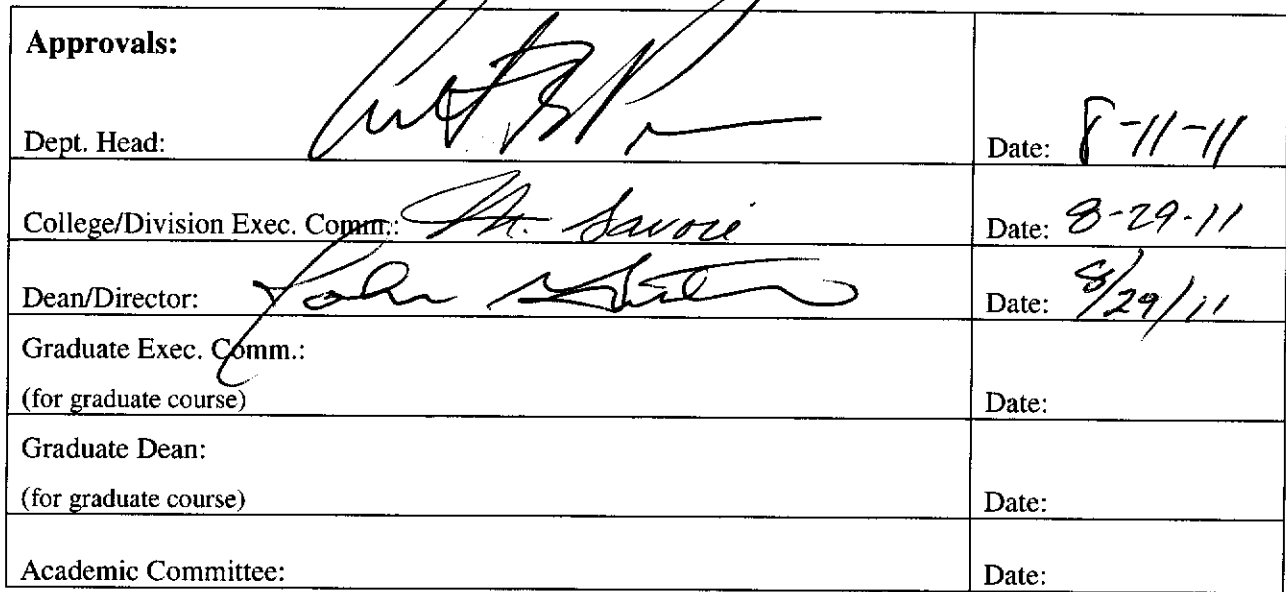 Approvals:
Dept. Head: Date: 8-11-11
College/Division Exec. Comm.: Savoie Date: 8-29-11
Dean/Director: John Date: 8/29/11
Graduate Exec. Comm.:
(for graduate course) Date:
Graduate Dean:
(for graduate course) Date:
Academic Committee: Date: